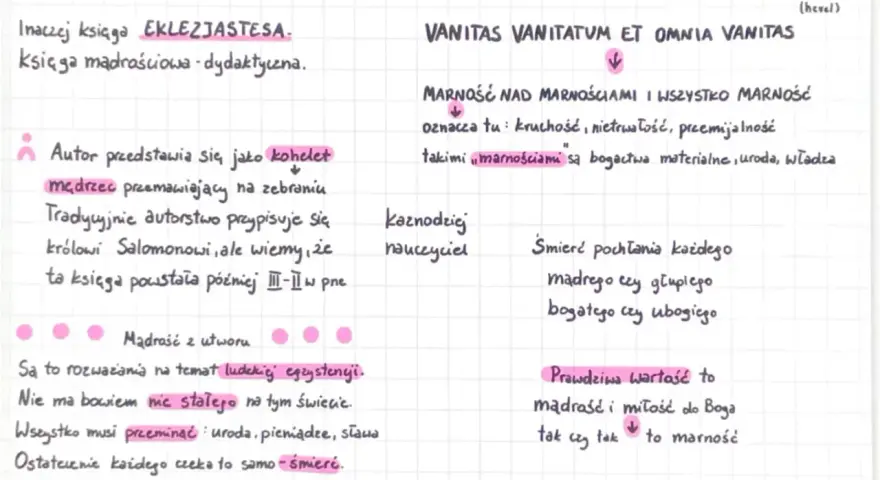 Inaczej księga EKLEZJASTESA.
księga mądrościowa - dydaktyczna.
Autor przedstawia się jako kohelet
↓
mędrzec przemawiający na zebraniu
Tradycyjnie autorstwo przypisuje się
królowi Salomonowi, ale wiemy, że
ta księga powstała później III-II w pne
kaznodziej
nauczyciel
Mądrość z utworu
Są to rozważania na temat ludzkiej egzystencji.
Nie ma bowiem nic stałego na tym świecie.
Wszystko musi przeminąć : uroda, pieniądze, sława
Ostatecznie każdego czeka to samo - śmierć.
(hevel)
VANITAS VANITATUM ET OMNIA VANITAS
↓
MARNOŚĆ NAD MARNOŚCIAMI I WSZYSTKO MARNOŚĆ
↓
oznacza tu : kruchość, nietrwałość, przemijalność
takimi „marnościami" są bogactwa materialne, uroda, władza
Śmierć pochłania każdego
mądrego czy głupiego
bogatego czy ubogiego
Prawdziwa wartość to
mądrość i miłość do Boga
tak czy tak ↓ to marność